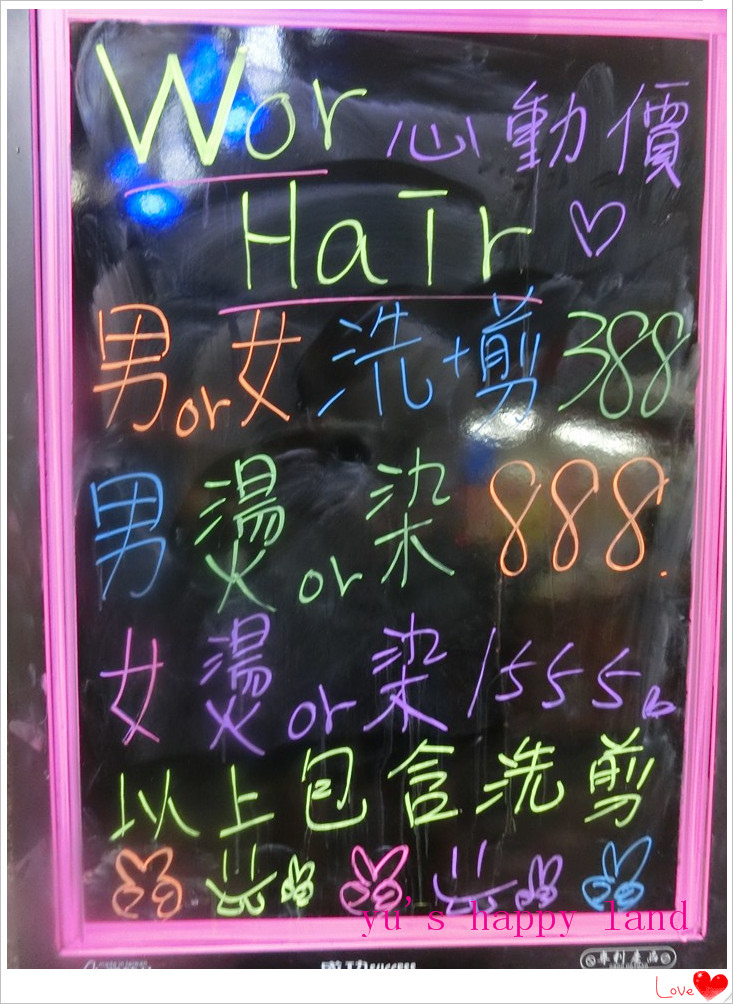 Wor 心動價
HaIr
男or女 洗+剪 388
男燙or染 888.
女燙or染 1555。
以上包含洗剪
yu's happy land
SUCCESS
專利產品
Love